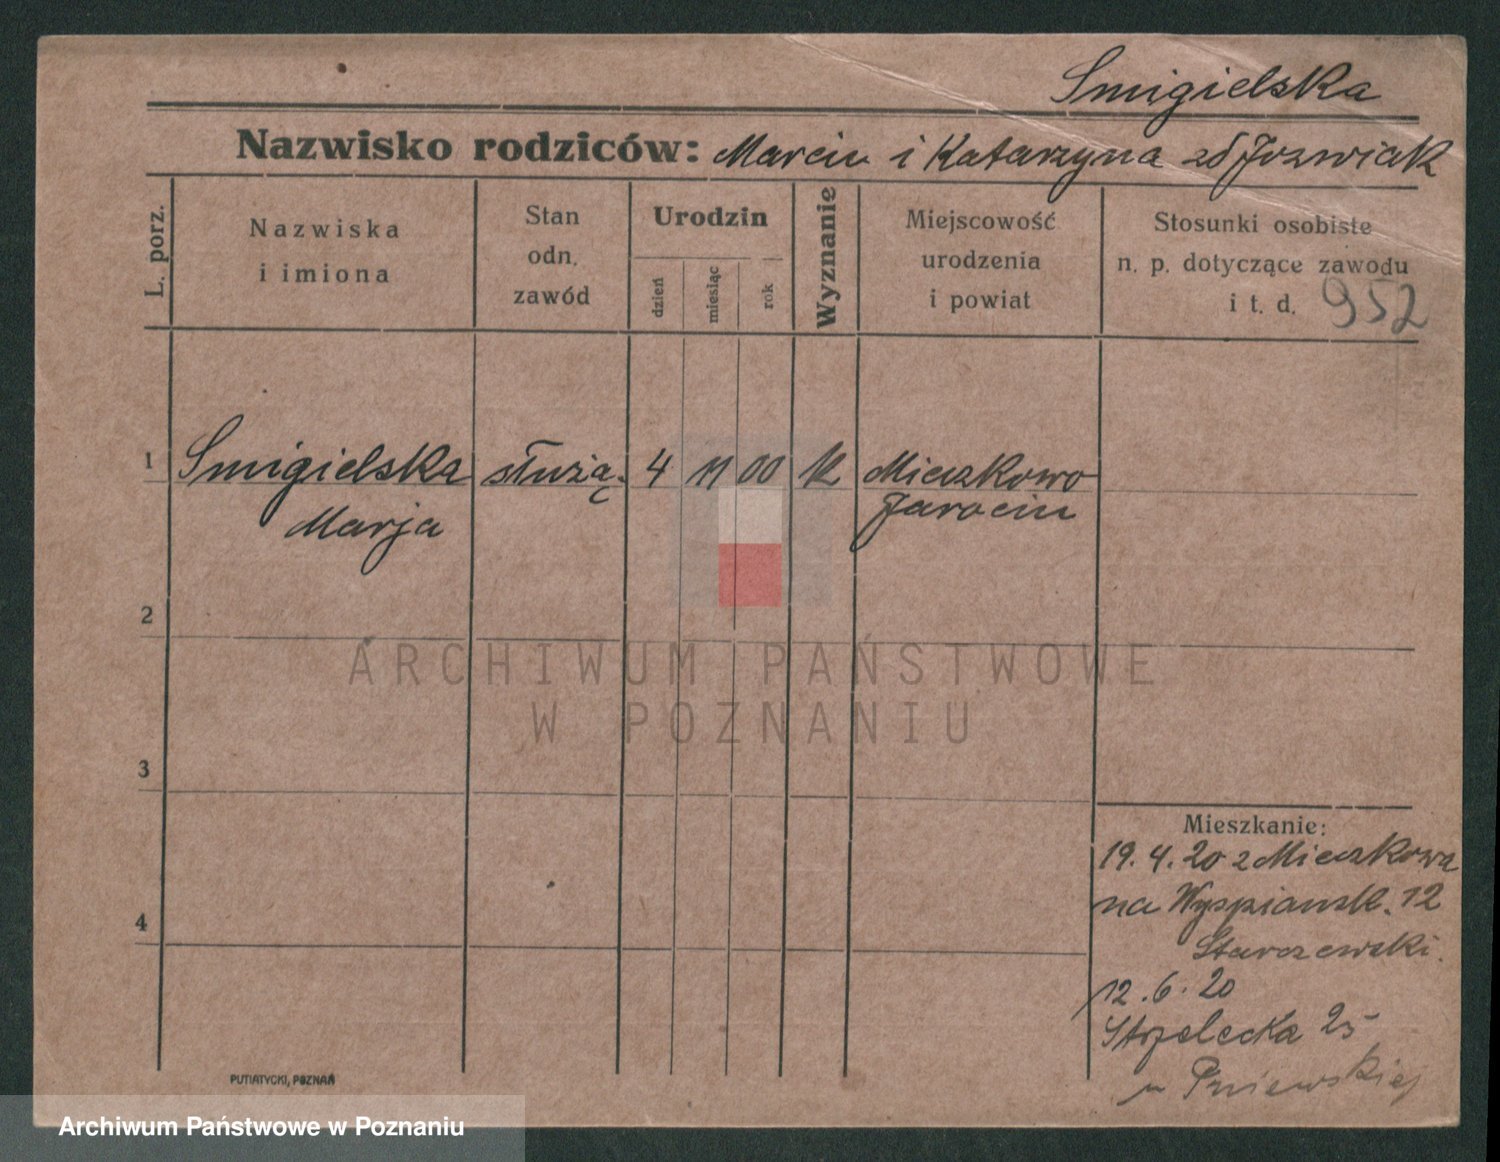 Smigielska
Nazwisko rodziców: Marcin i Katarzyna zd Jozwiak
L. porz.
Nazwiska
i imiona
Stan
odn.
zawód
Urodzin
dzień
miesiąc
rok
Wyznanie
Miejscowość
urodzenia
i powiat
Stosunki osobiste
n. p. dotyczące zawodu
i t. d.
952
1 Smigielska służą. 4 11 00 K Mieszkowo
Marja
ca
Jarocin
2
ARCHIWUM PAŃSTWOWE
W POZNANIU
3
Mieszkanie:
19.4.20 z Mieszkowa
na Wyspiansk. 12
Starczewski.
4
12.6.20
Strzelecka 25
u Pniewskiej
PUTIATYCKI, POZNAŃ
Archiwum Państwowe w Poznaniu